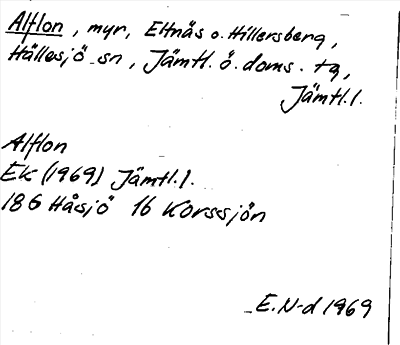 Alflon, myr, Eltnäs o. Hillersberg,
Hällesjö sn, Jämtl. ö. doms. tg,
Jämtl.l.
Alflon
Ek (1969) Jämtl.l.
18G Håsjö 16 Korssjön
E.N-d 1969